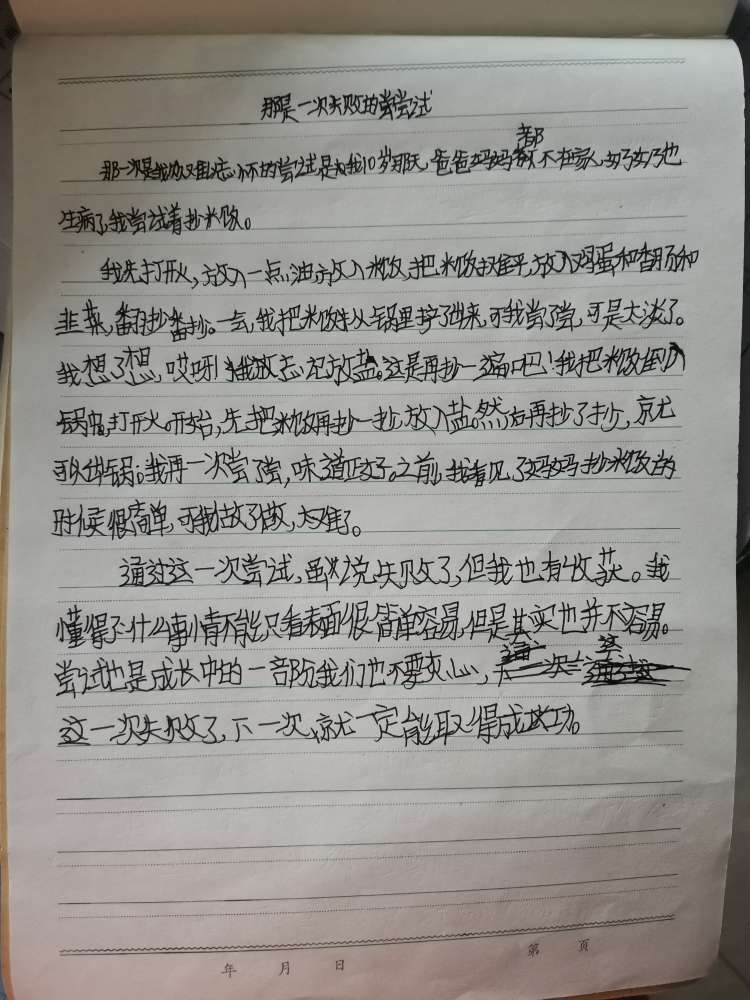 那是一次失败的尝试
那一次是我做又难忘怀的尝试是在我10岁那天,爸爸妈妈都不在家,奶奶也
生病了,我尝试着抄米饭。
我先打开火,放入一点油放入米饭,把米饭扒平,放入鸡蛋和胡瓜和
韭菜,翻抄翻抄。一会,我把米饭从锅里捞了出来,可我尝了尝,可是太淡了。
我想了想,哎呀!我忘放盐。这是再抄一遍吧!我把米饭倒入
锅中,打开火。开始,先把米饭再抄一抄,放入盐。然后再抄了抄,京尤
可以出锅。我再一次尝了尝,味道正好。之前,我看见了妈妈抄米饭的
时候很简单,可我做了做,太难了。
通过这一次尝试,虽然说失败了,但我也有收获。我
懂得了什么事情不能只看表面很简单容易,但是其实也并不容易。
尝试也是成长中的一部阮我们也不要灰心,
这一次失败了,下一次,就一定能取得成功。